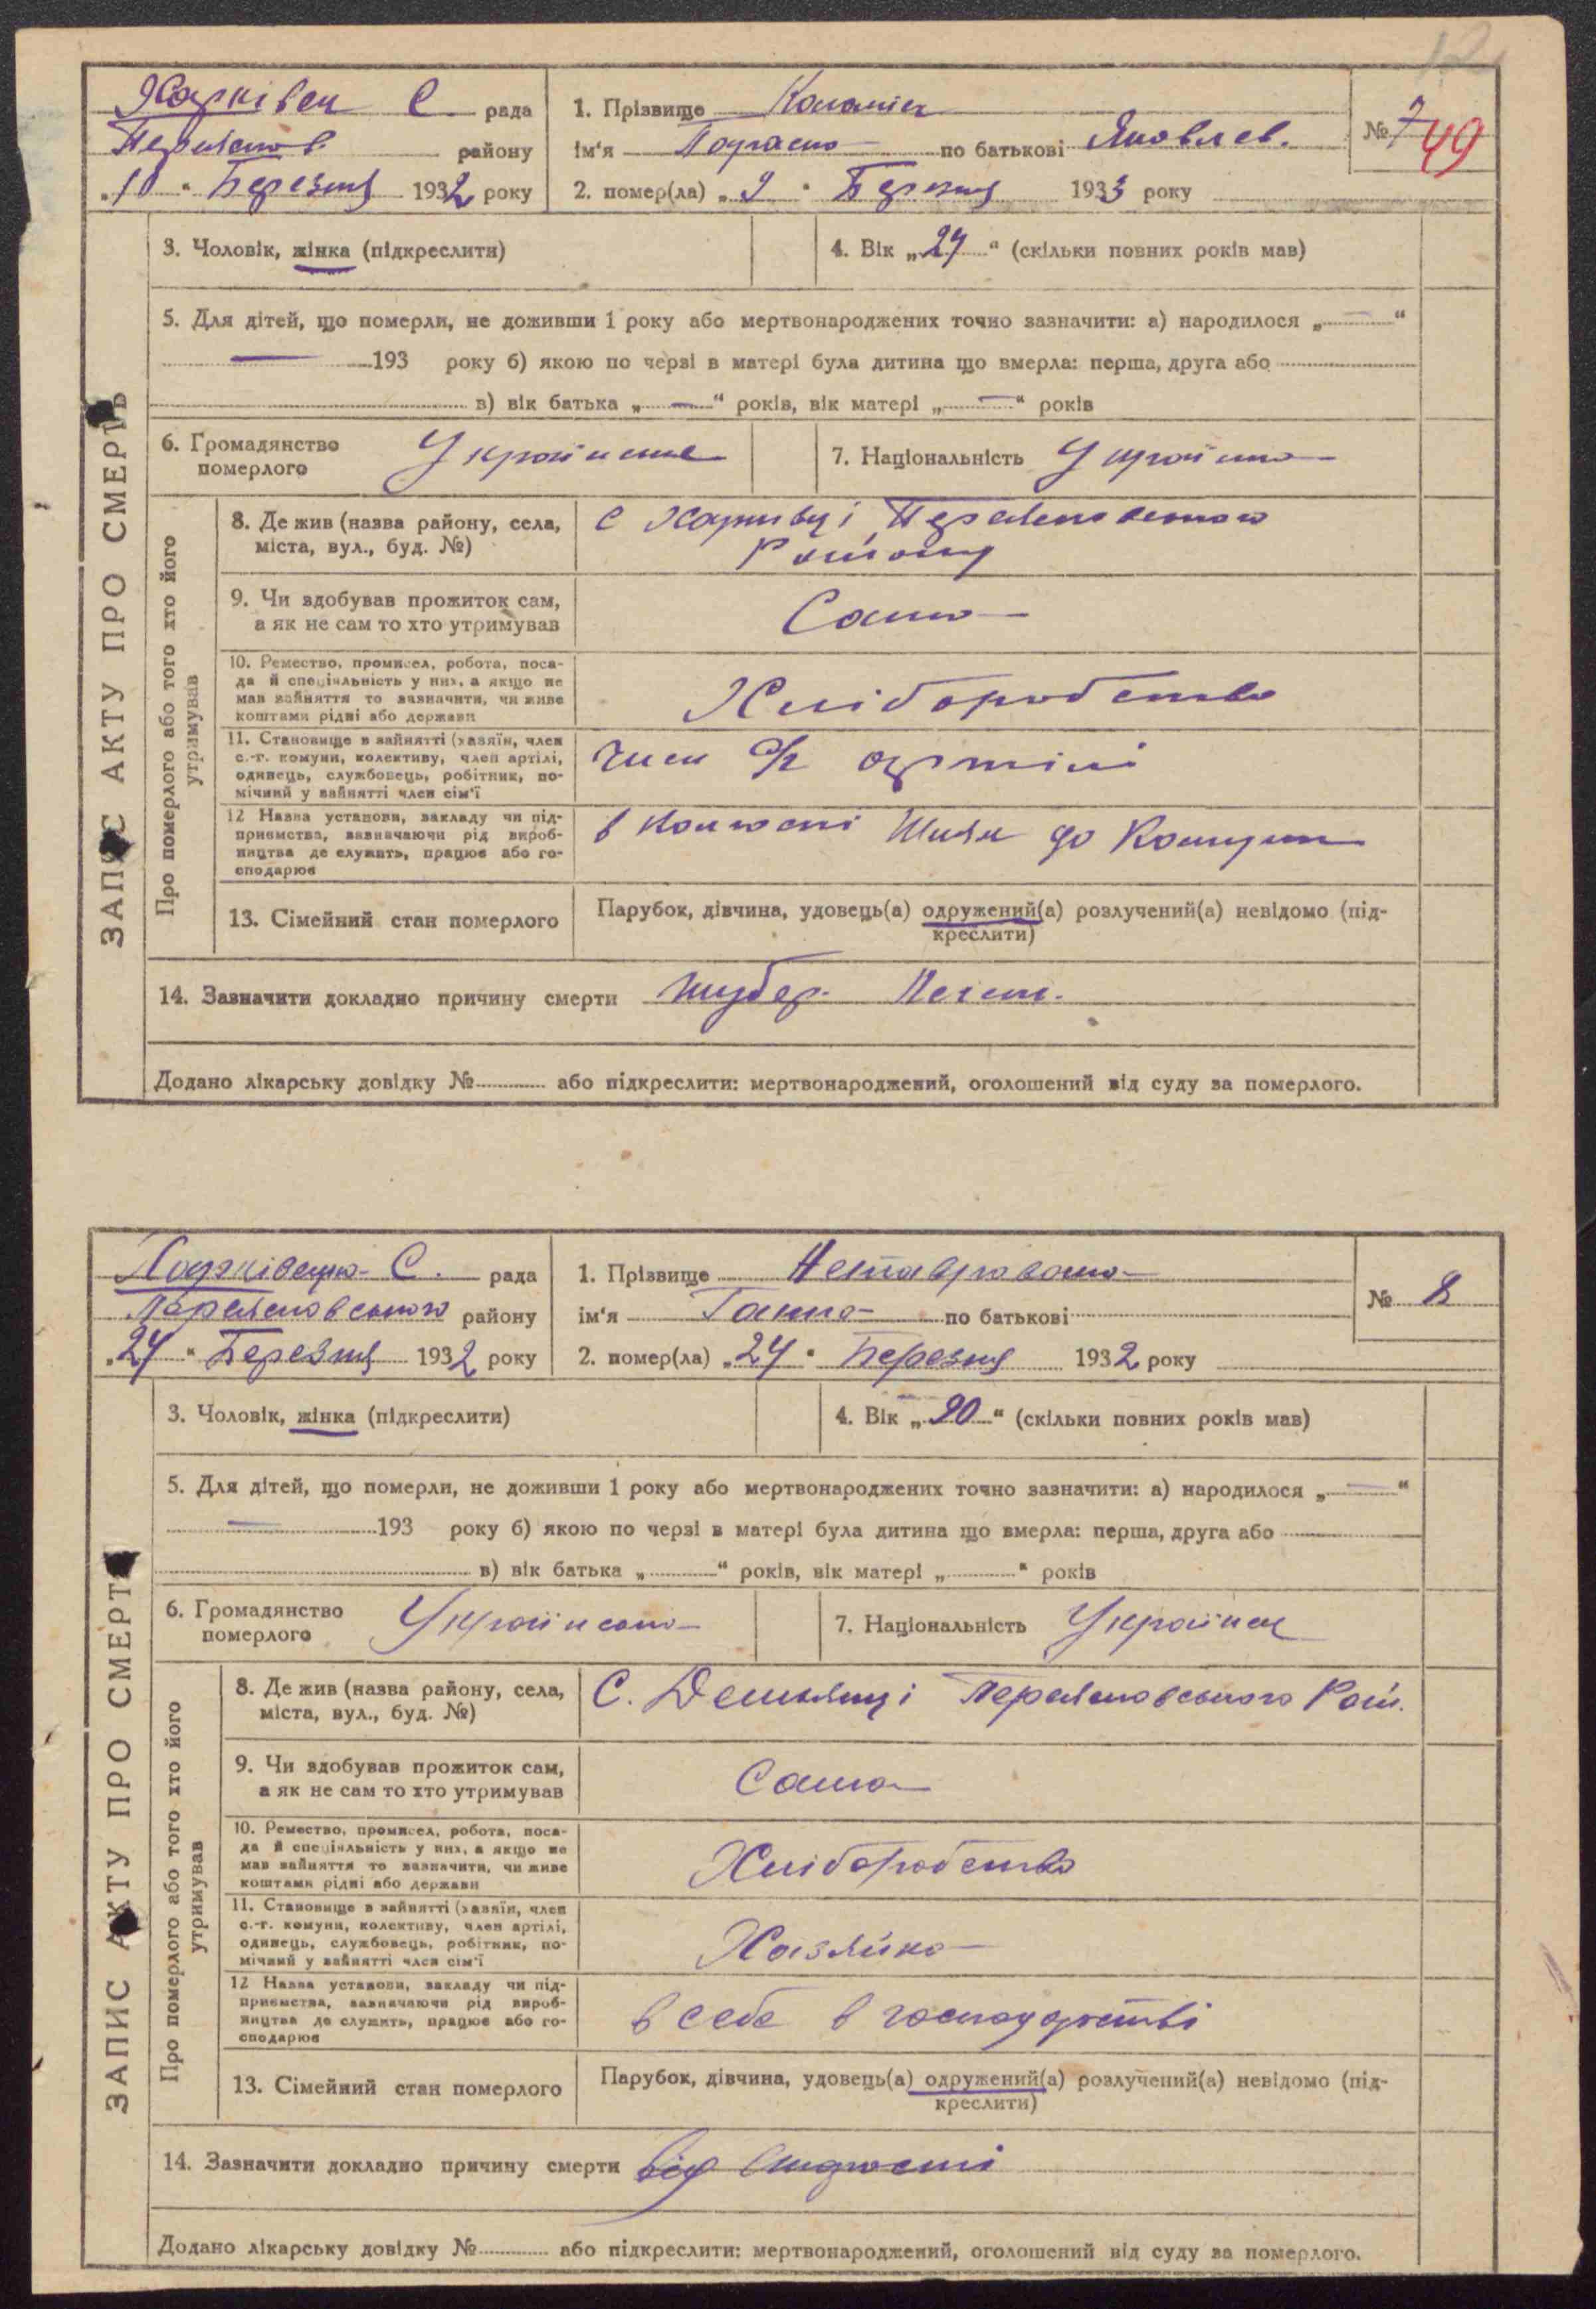 Харківец С рада
Переяслов району
"10" Березня 1932 року
1. Прізвище Коломієц
ім'я Параска по батькові Яковлев.
2. помер(ла) "9" Березня 1933 року
№ 7
49
ЗАПИС АКТУ ПРО СМЕРТЬ
3. Чоловік, жінка (підкреслити)
4. Вік "24" (скільки повних років мав)
5. Для дітей, що померли, не доживши 1 року або мертвонароджених точно зазначити: а) народилося "—"
— 193 року б) якою по черзі в матері була дитина що вмерла: перша, друга або
в) вік батька "—" років, вік матері "—" років
6. Громадянство
померлого
7. Національність Українка
Про померлого або того хто його
утримував
8. Де жив (назва району, села,
міста, вул., буд. №)
с Харківці Переясловського
Району
9. Чи здобував прожиток сам,
а як не сам то хто утримував
Сама
10. Ремество, промисел, робота, поса-
да й спеціяльність у них, а якщо не
мав зайняття то зазначити, чи живе
коштами рідні або держави
Хліборобство
11. Становище в зайнятті (хазяїн, член
с.-г. комуни, колективу, член артілі,
одинець, службовець, робітник, по-
мічний у зайнятті член сім'ї
Член с/г артілі
12 Назва установи, закладу чи під-
приємства, зазначаючи рід вироб-
ництва де служить, працює або го-
сподарює
в колгоспі Шлях до Комуни
13. Сімейний стан померлого
Парубок, дівчина, удовець(а) одружений(а) розлучений(а) невідомо (під-
креслити)
14. Зазначити докладно причину смерти тубер. Леген.
Додано лікарську довідку № або підкреслити: мертвонароджений, оголошений від суду за померлого.
Харківецка С. рада
Переясловського району
"24" Березня 1932 року
1. Прізвище
ім'я Ганна по батькові
2. помер(ла) "24" Березня 1932 року
№ 8
ЗАПИС АКТУ ПРО СМЕРТЬ
3. Чоловік, жінка (підкреслити)
4. Вік "90" (скільки повних років мав)
5. Для дітей, що померли, не доживши 1 року або мертвонароджених точно зазначити: а) народилося "—"
— 193 року б) якою по черзі в матері була дитина що вмерла: перша, друга або
в) вік батька " " років, вік матері " " років
6. Громадянство
померлого
Українсько
7. Національність Українка
Про померлого або того хто його
утримував
8. Де жив (назва району, села,
міста, вул., буд. №)
С. Демьянці Переясловського Рай.
9. Чи здобував прожиток сам,
а як не сам то хто утримував
Сама
10. Ремество, промисел, робота, поса-
да й спеціяльність у них, а якщо не
мав зайняття то зазначити, чи живе
коштами рідні або держави
Хліборобство
11. Становище в зайнятті (хазяїн, член
с.-г. комуни, колективу, член артілі,
одинець, службовець, робітник, по-
мічний у зайнятті член сім'ї
Хазяйка
12 Назва установи, закладу чи під-
приємства, зазначаючи рід вироб-
ництва де служить, працює або го-
сподарює
в себе в господарстві
13. Сімейний стан померлого
Парубок, дівчина, удовець(а) одружений(а) розлучений(а) невідомо (під-
креслити)
14. Зазначити докладно причину смерти від старости
Додано лікарську довідку № або підкреслити: мертвонароджений, оголошений від суду за померлого.